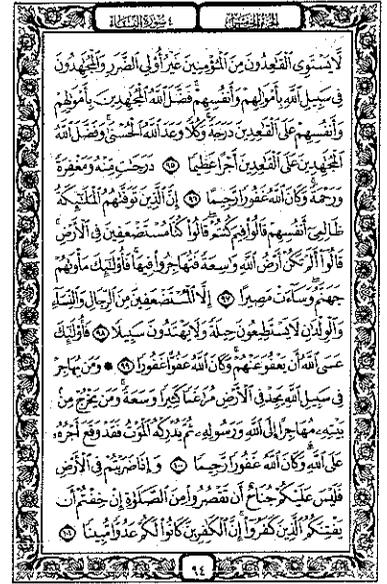 الجزء الخامس
٤ سورة النساء
لَّا يَسْتَوِي الْقَاعِدُونَ مِنَ الْمُؤْمِنِينَ غَيْرُ أُولِي الضَّرَرِ وَالْمُجَاهِدُونَ
فِي سَبِيلِ اللَّهِ بِأَمْوَالِهِمْ وَأَنفُسِهِمْ فَضَّلَ اللَّهُ الْمُجَاهِدِينَ بِأَمْوَالِهِمْ
وَأَنفُسِهِمْ عَلَى الْقَاعِدِينَ دَرَجَةً وَكُلًّا وَعَدَ اللَّهُ الْحُسْنَى وَفَضَّلَ اللَّهُ
الْمُجَاهِدِينَ عَلَى الْقَاعِدِينَ أَجْرًا عَظِيمًا ٩٥ دَرَجَاتٍ مِّنْهُ وَمَغْفِرَةً
وَرَحْمَةً وَكَانَ اللَّهُ غَفُورًا رَّحِيمًا ٩٦ إِنَّ الَّذِينَ تَوَفَّاهُمُ الْمَلَائِكَةُ
ظَالِمِي أَنفُسِهِمْ قَالُوا فِيمَ كُنتُمْ قَالُوا كُنَّا مُسْتَضْعَفِينَ فِي الْأَرْضِ
قَالُوا أَلَمْ تَكُنْ أَرْضُ اللَّهِ وَاسِعَةً فَتُهَاجِرُوا فِيهَا فَأُولَئِكَ مَأْوَاهُمْ
جَهَنَّمُ وَسَاءَتْ مَصِيرًا ٩٧ إِلَّا الْمُسْتَضْعَفِينَ مِنَ الرِّجَالِ وَالنِّسَاءِ
وَالْوِلْدَانِ لَا يَسْتَطِيعُونَ حِيلَةً وَلَا يَهْتَدُونَ سَبِيلًا ٩٨ فَأُولَئِكَ
عَسَى اللَّهُ أَن يَعْفُوَ عَنْهُمْ وَكَانَ اللَّهُ عَفُوًّا غَفُورًا ٩٩ وَمَن يُهَاجِرْ
فِي سَبِيلِ اللَّهِ يَجِدْ فِي الْأَرْضِ مُرَاغَمًا كَثِيرًا وَسَعَةً وَمَن يَخْرُجْ مِن
بَيْتِهِ مُهَاجِرًا إِلَى اللَّهِ وَرَسُولِهِ ثُمَّ يُدْرِكْهُ الْمَوْتُ فَقَدْ وَقَعَ أَجْرُهُ
عَلَى اللَّهِ وَكَانَ اللَّهُ غَفُورًا رَّحِيمًا ١٠٠ وَإِذَا ضَرَبْتُمْ فِي الْأَرْضِ
فَلَيْسَ عَلَيْكُمْ جُنَاحٌ أَن تَقْصُرُوا مِنَ الصَّلَاةِ إِنْ خِفْتُمْ أَن
يَفْتِنَكُمُ الَّذِينَ كَفَرُوا إِنَّ الْكَافِرِينَ كَانُوا لَكُمْ عَدُوًّا مُّبِينًا ١٠١
٩٤